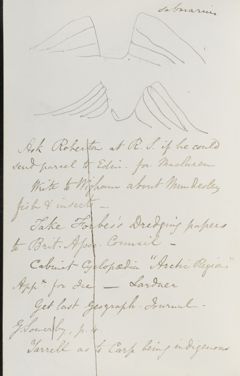 submarine
Ask Roberton at R.S. if he could
send parcel to Edin. for
Write to Wigham about Mundesley
fish & insects —
Take Forbes's Dredging papers
to Brit. Assoc. Council —
Cabinet Cyclopædia "Arctic Regions"
Appx for Ice — Lardner
Get last Geograph. Journal.
G. Sowerby, p. 4
Yarrell as to Carp being indigenous